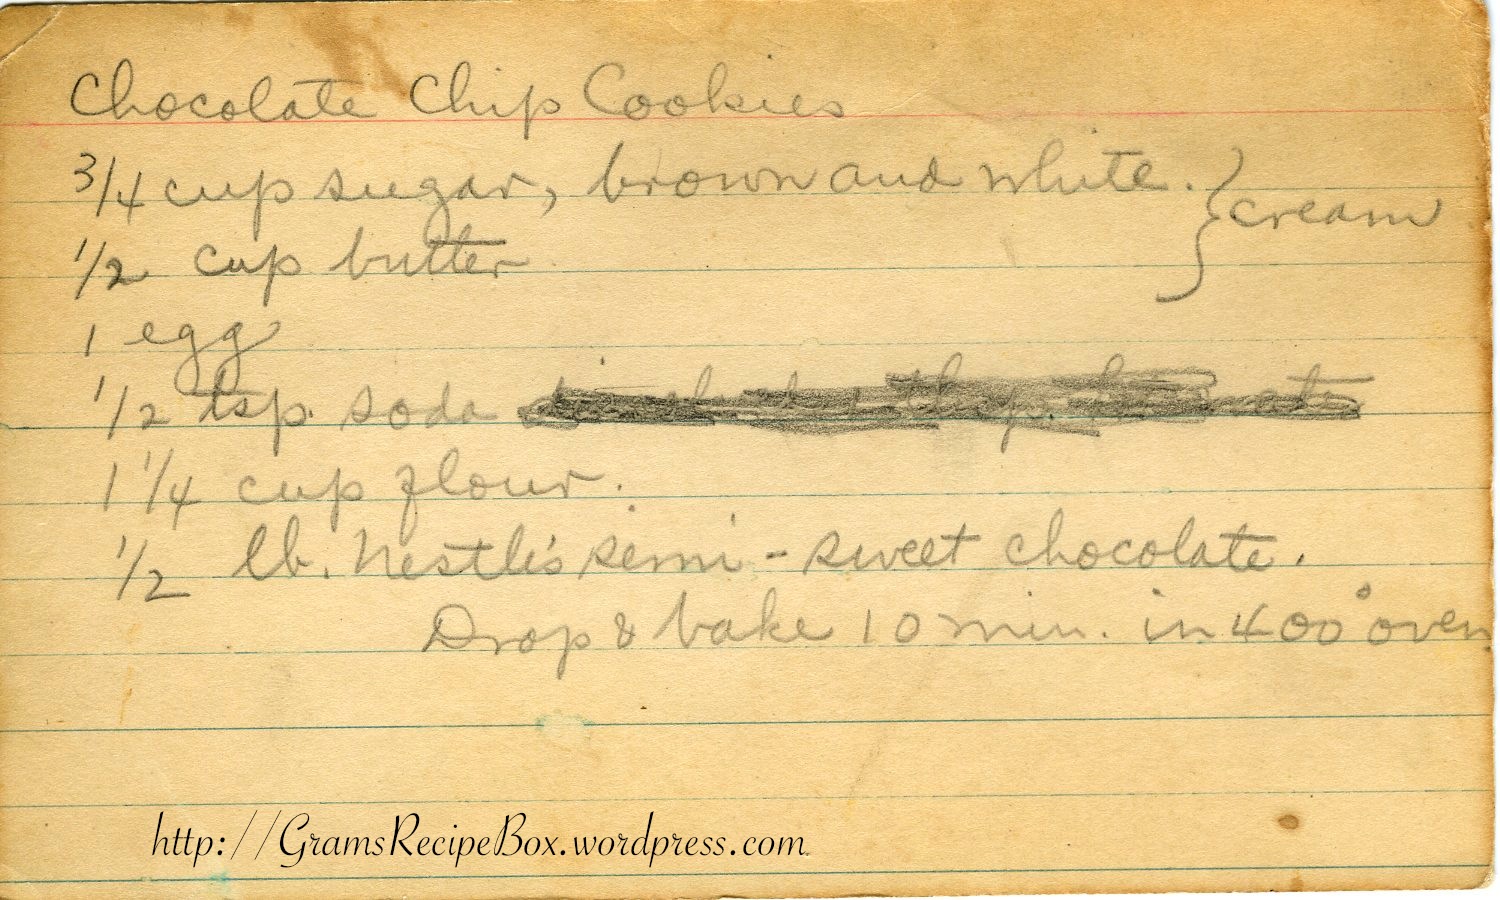 Chocolate Chip Cookies
3/4 cup sugar, brown and white. } cream
1/2 cup butter
1 egg
1/2 tsp. soda
1 1/4 cup flour.
1/2 lb. Nestle's semi-sweet chocolate.
Drop & bake 10 min. in 400° oven
http://GramsRecipeBox.wordpress.com